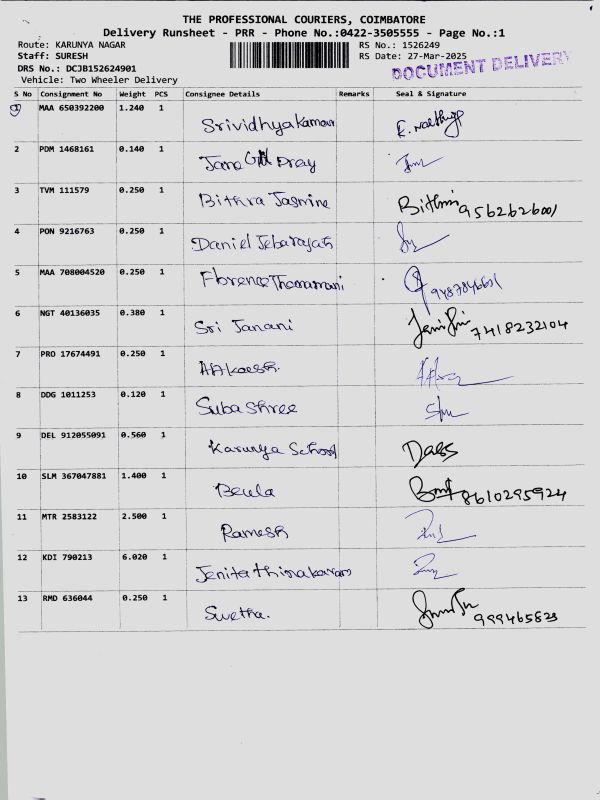 THE PROFESSIONAL COURIERS, COIMBATORE
Delivery Runsheet - PRR - Phone No.:0422-3505555 - Page No.:1
Route: KARUNYA NAGAR RS No.: 1526249
Staff: SURESH RS Date: 27-Mar-2025
DRS No.: DCJB152624901 DOCUMENT DELIVERY
Vehicle: Two Wheeler Delivery
S No Consignment No Weight PCS Consignee Details Remarks Seal & Signature
1 MAA 650392200 1.240 1 Srividhya
2 PDM 1468161 0.140 1
3 TVM 111579 0.250 1 Bithra Jasmine 9562626001
4 PON 9216763 0.250 1 Daniel Jebarajah
5 MAA 708004520 0.250 1 Florence Thanamani
6 NGT 40136035 0.380 1 Sri Janani 7418232104
7 PRO 17674491 0.250 1
8 DDG 1011253 0.120 1 Suba Shree
9 DEL 912055091 0.560 1 Karunya School
10 SLM 367047881 1.400 1 Beula 8610295924
11 MTR 2583122 2.500 1 Ramesh
12 KDI 790213 6.020 1 Jenita
13 RMD 636044 0.250 1 Swetha.